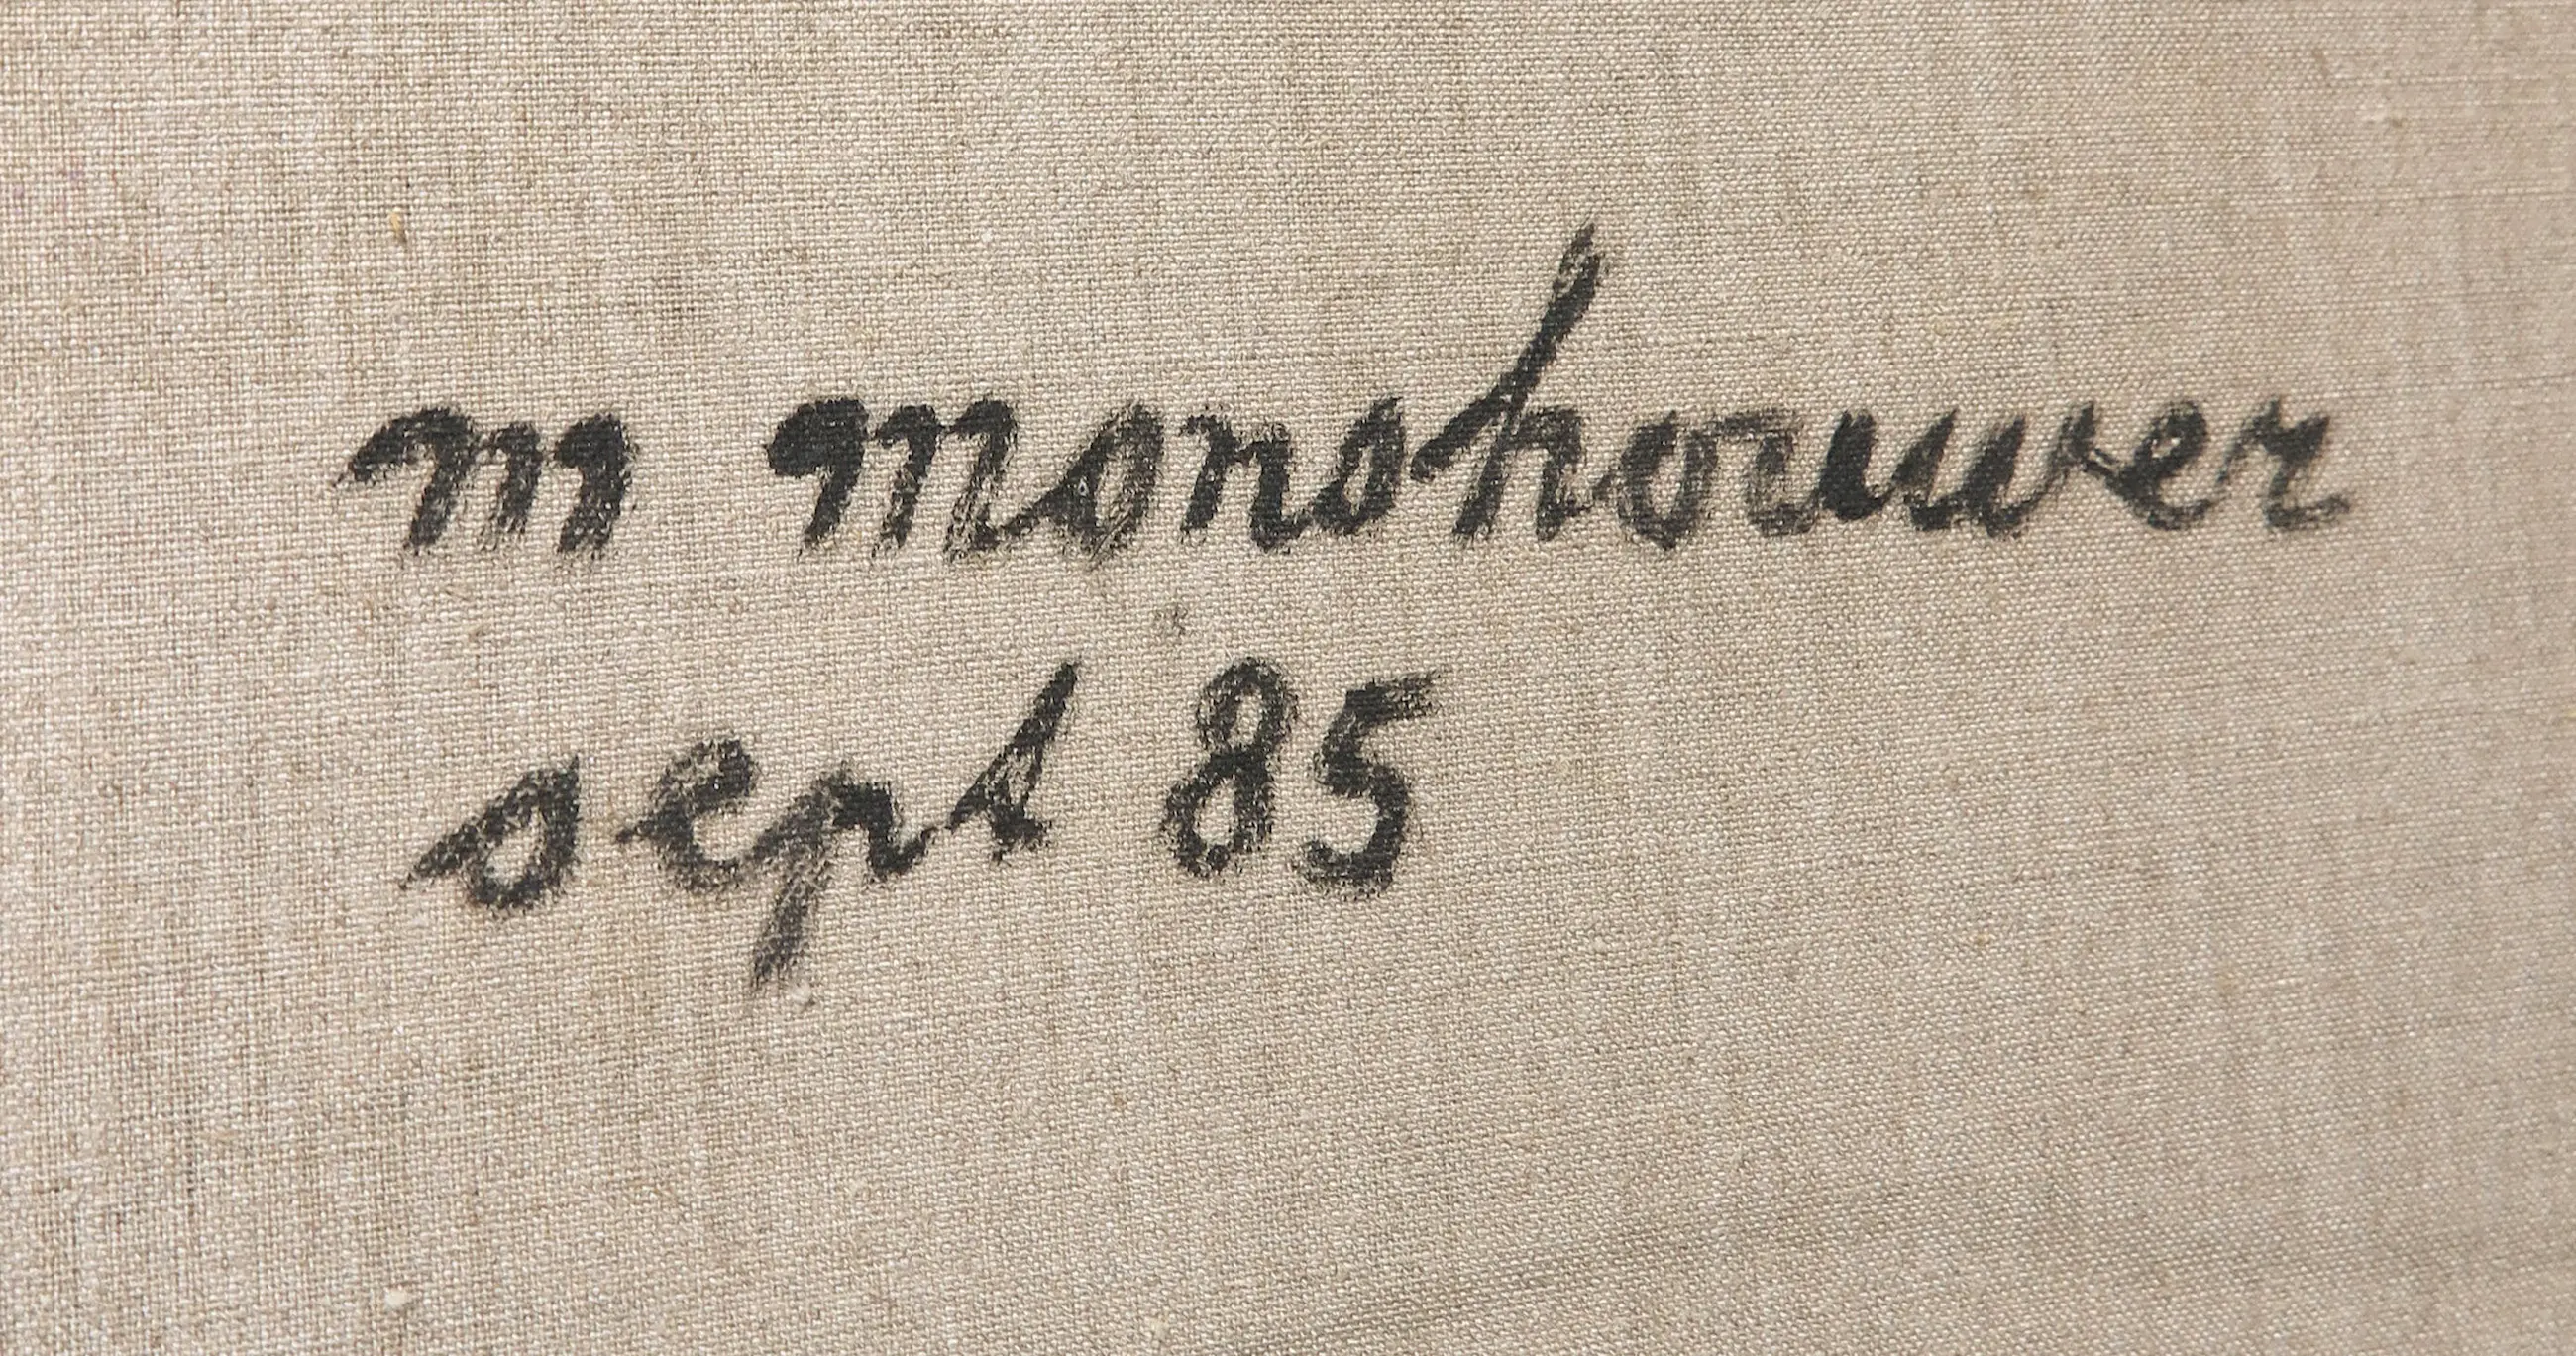 m monshouwer
sept 85